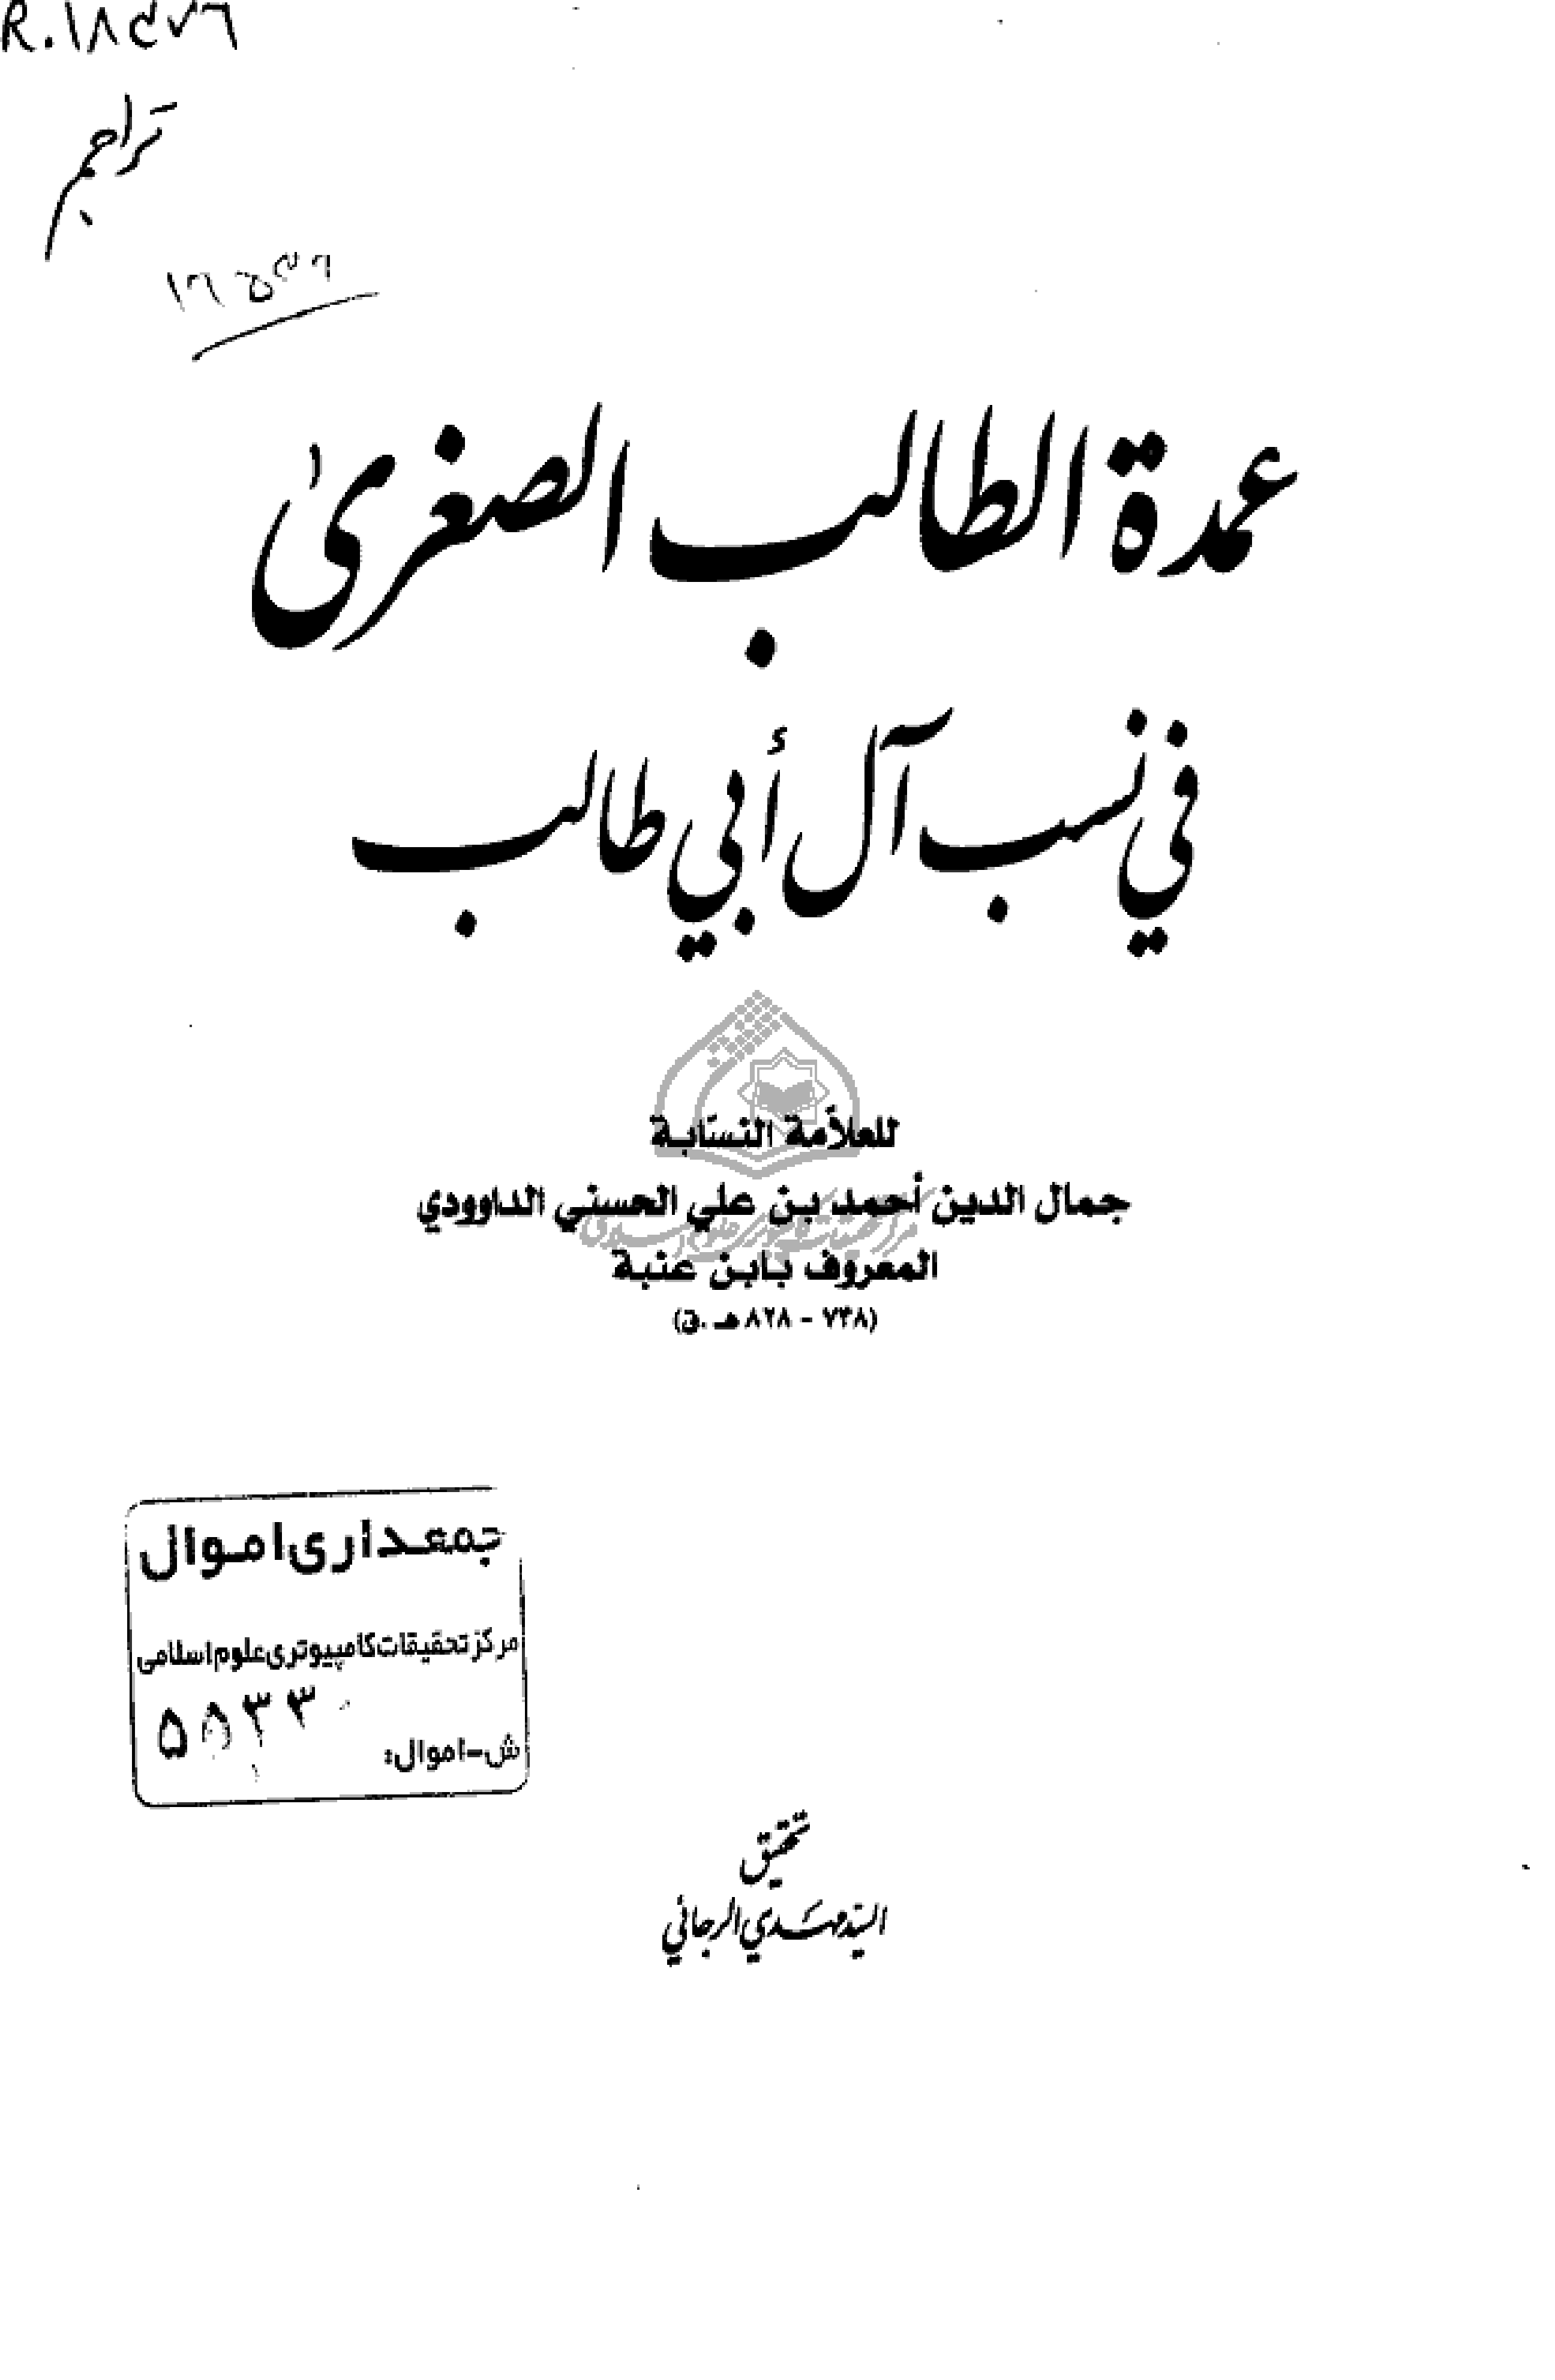 تراجم
عمدة الطالب الصغرىٰ
في نسب آل أبي طالب
للعلاّمة النسّابة
جمال الدين أحمد بن علي الحسني الداوودي
المعروف بابن عنبة
(٧٣٨ - ٨٢٨ هـ .ق)
جمعداری اموال
مرکز تحقیقات کامپیوتری علوم اسلامی
ش-اموال:
تحقيق
السيّد مهدي الرجائي